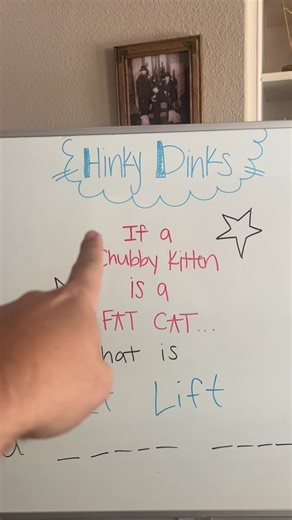 Hinky Dinks
If a
Chubby Kitten
is a
FAT CAT...
What is
Lift